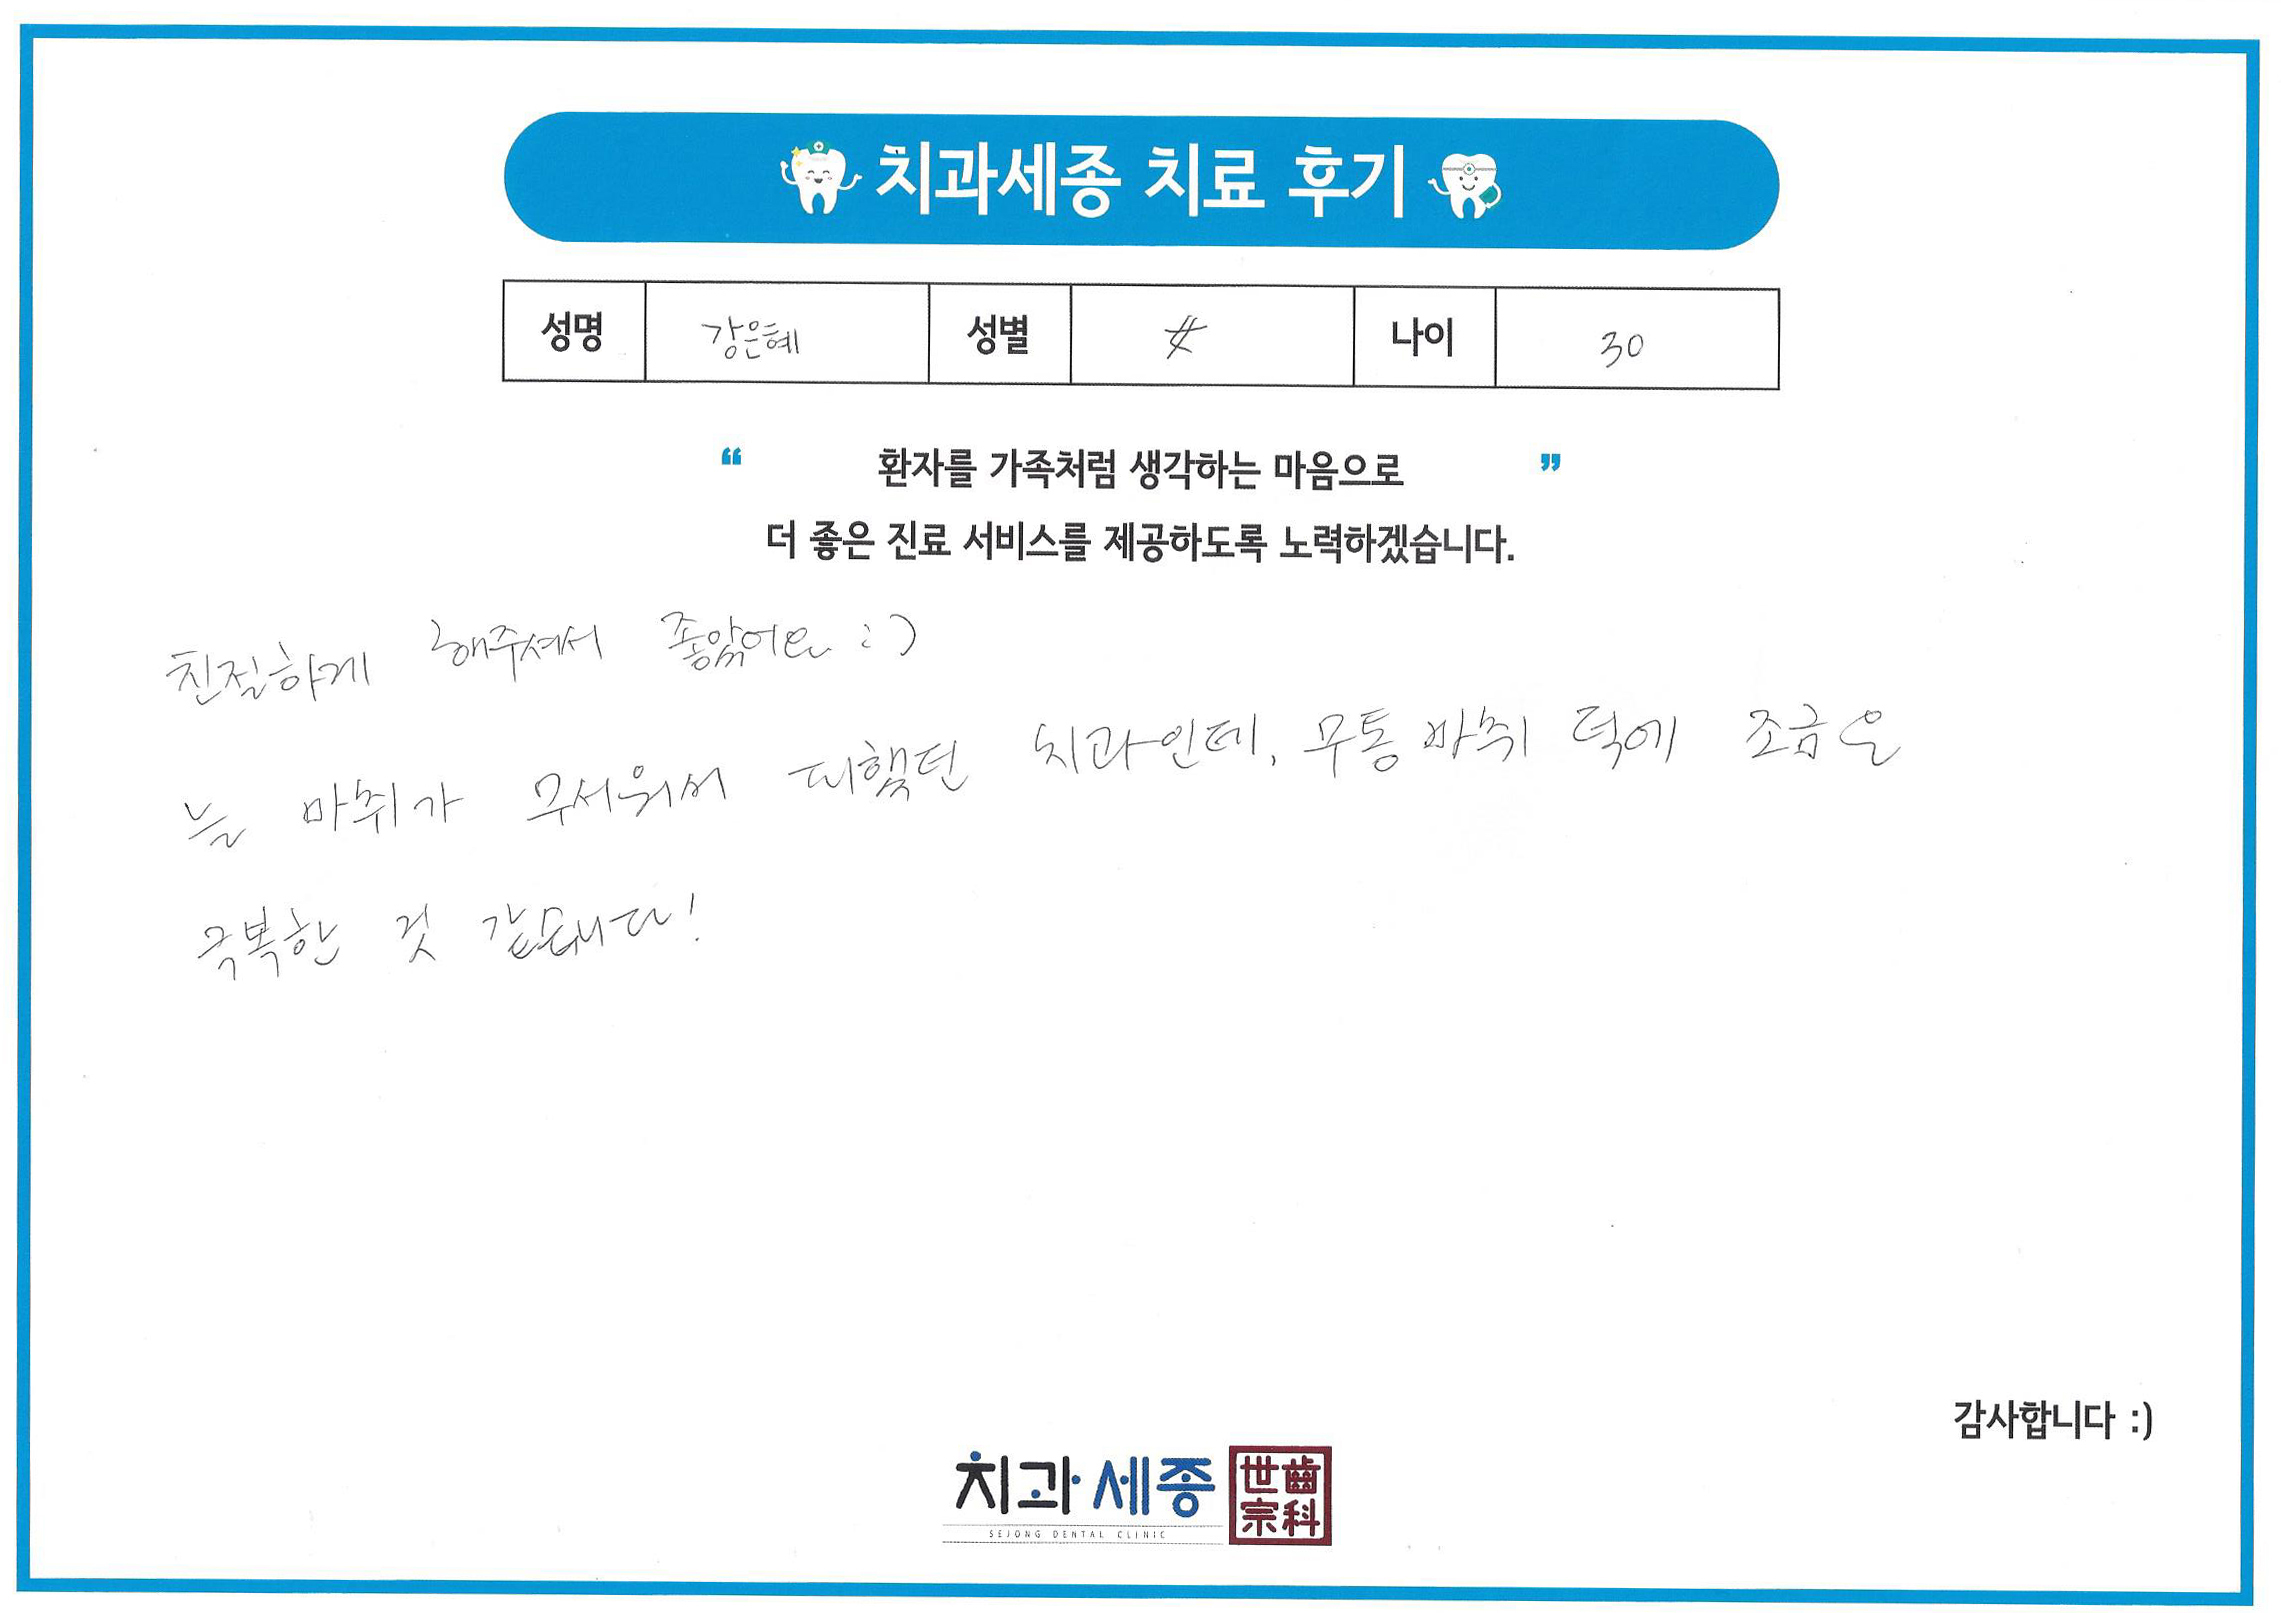 치과세종 치료 후기
성명 강은혜 성별 女 나이 30
“ 환자를 가족처럼 생각하는 마음으로 ”
더 좋은 진료 서비스를 제공하도록 노력하겠습니다.
친절하게 해주셔서 좋았어요 :)
늘 마취가 무서워서 피했던 치과인데, 무통 마취 덕에 조금은
극복한 것 같습니다!
감사합니다 :)
치과세종 世齒
SEJONG DENTAL CLINIC 宗科